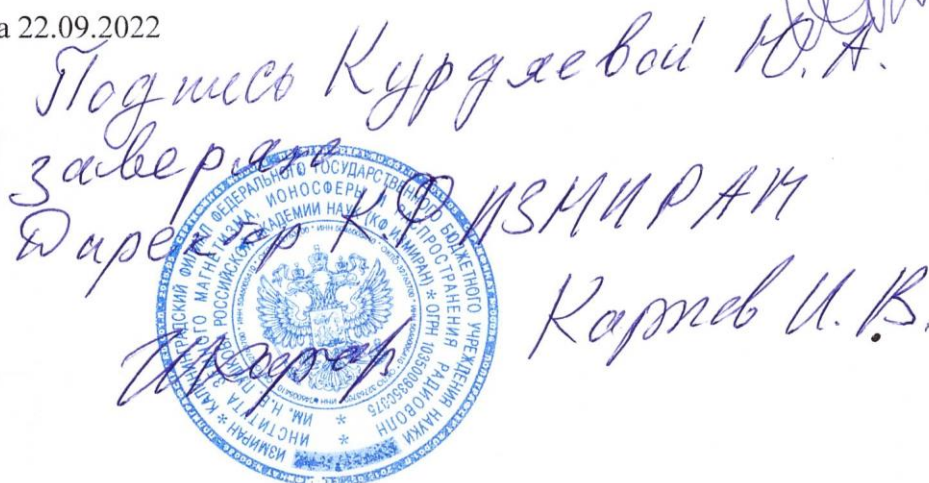 а 22.09.2022
Подпись Курдяевой Ю.А.
заверяю
Директор КФ ИЗМИРАН
Карпов И.В.
ИЗМИРАН * КАЛИНИНГРАДСКИЙ ФИЛИАЛ ФЕДЕРАЛЬНОГО ГОСУДАРСТВЕННОГО БЮДЖЕТНОГО УЧРЕЖДЕНИЯ НАУКИ
ИНСТИТУТА ЗЕМНОГО МАГНЕТИЗМА, ИОНОСФЕРЫ И РАСПРОСТРАНЕНИЯ РАДИОВОЛН
ИМ. Н.В. ПУШКОВА РОССИЙСКОЙ АКАДЕМИИ НАУК (КФ ИЗМИРАН) * ОГРН 1035009350375